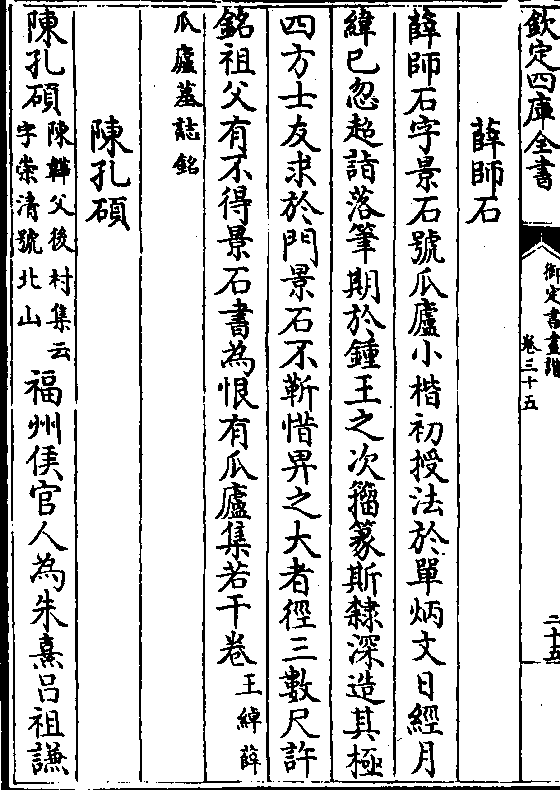 欽定四庫全書
御定書畫譜
卷三十五
二十五
薛師石
薛師石字景石號瓜廬小楷初授法於單炳文日經月
緯已忽超詣落筆期於鍾王之次籀篆斯隸深造其極
四方士友求於門景石不靳惜畀之大者徑三數尺許
銘祖父有不得景石書為恨有瓜廬集若干卷王綽薛
瓜廬墓誌銘
陳孔碩
陳孔碩陳韡父後村集云字崇清號北山福州侯官人為朱熹呂祖謙